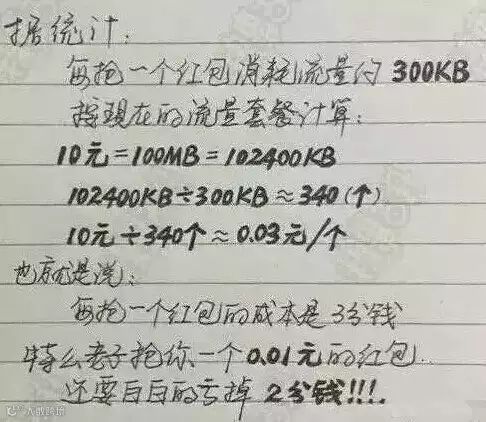 据统计:
每抢一个红包消耗流量约300KB
按现在的流量套餐计算:
10元=100MB=102400KB
102400KB÷300KB≈340(个)
10元÷340个≈0.03元/个
也就是说:
每抢一个红包的成本是3分钱
特么老子抢你一个0.01元的红包..
还要白白的亏掉2分钱!!!.